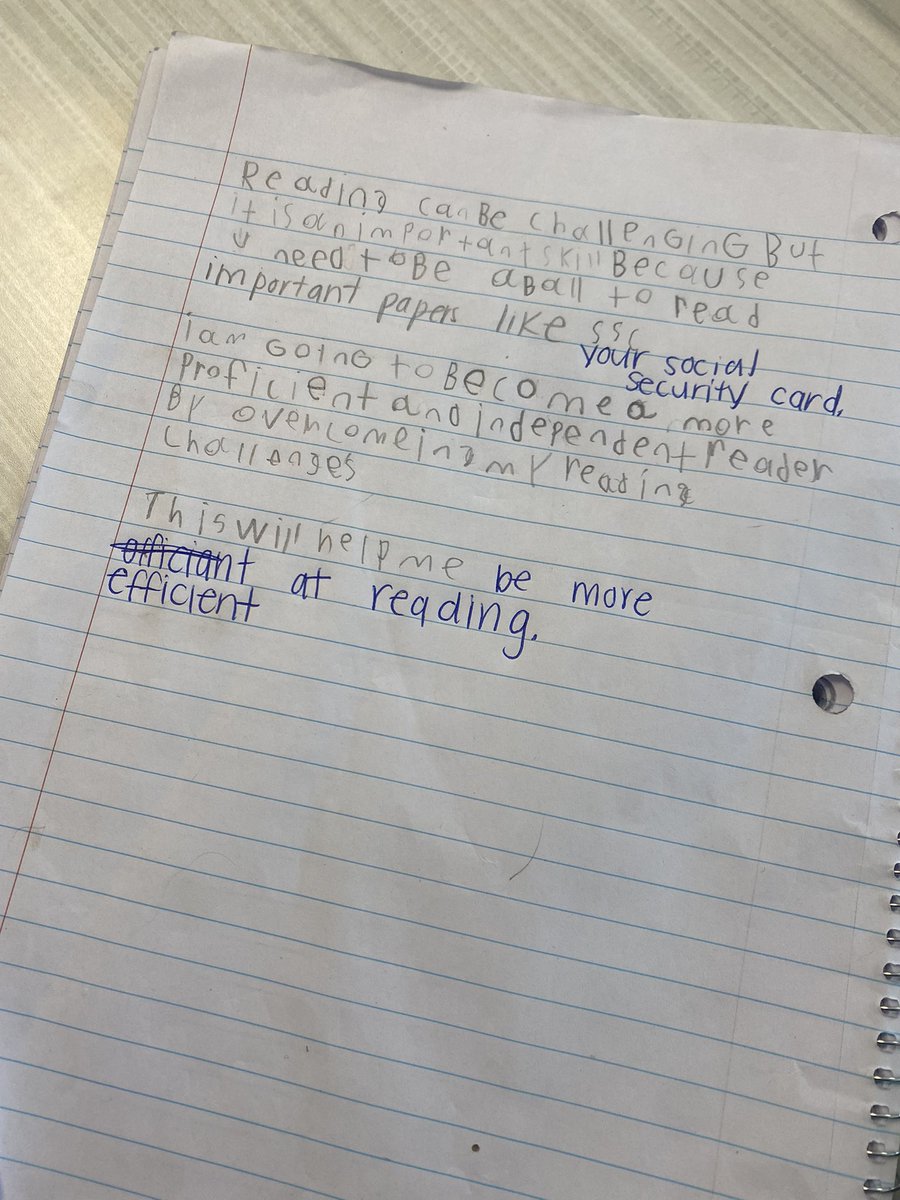 Reading can Be challenGinG But
it is an important skill Because
U need to Be aBall to read
important papers like ssc
your social
security card.
i am GoinG to Become a more
Proficient and independent reader
By overcomeing my reading
challenges
This will help me be more
efficiant at reading.
efficient